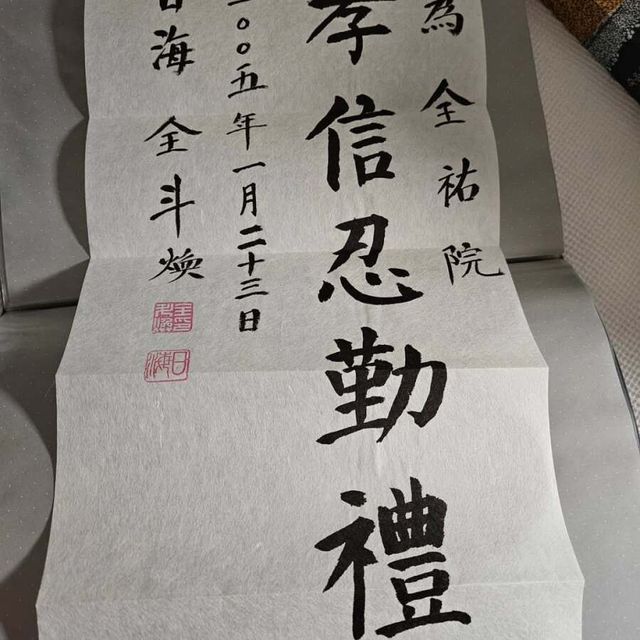 為全祐院
孝信忍勤禮
二〇〇五年一月二十三日
日海 全斗煥
日海